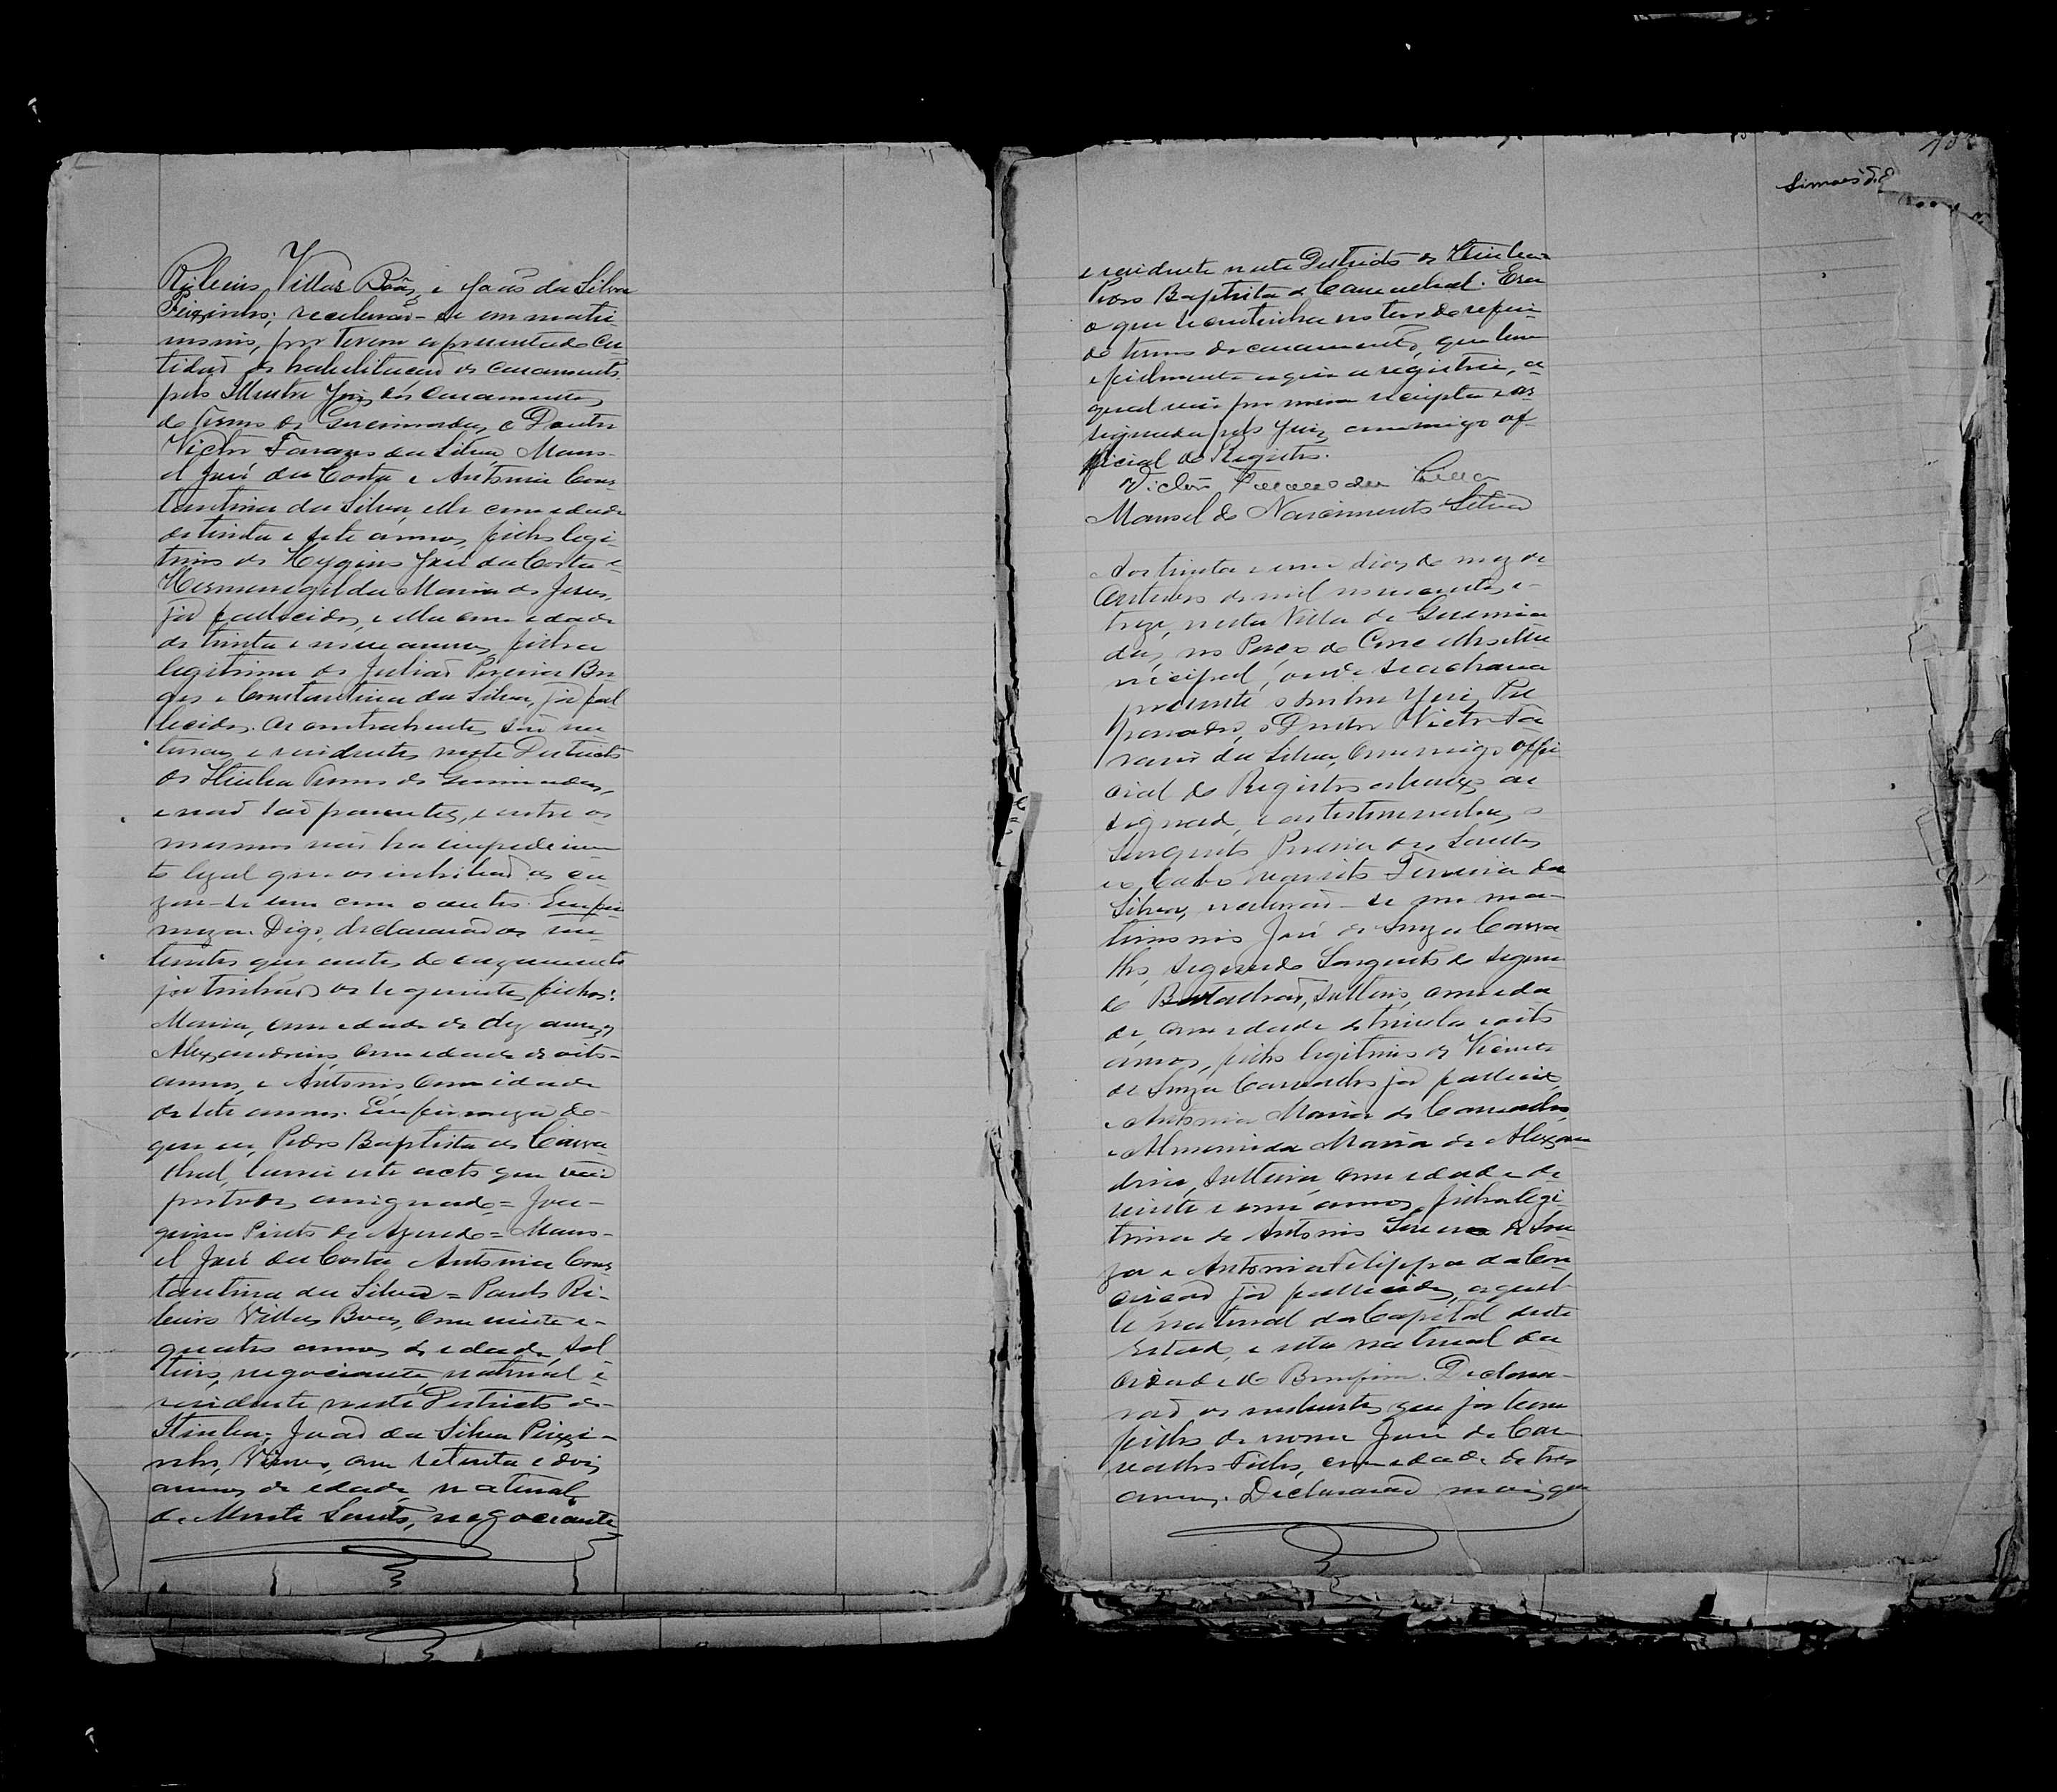 Ribeiro Villas Bôas, e João da Silva
Peixinho; receberão-se em matri-
monio, por terem apresentado cer-
tidão de habilitação de casamento
pelo Illustre Juiz dos Casamentos
do Termo de Queimadas, o Doutor
Victor Tavares da Silva, Mano-
el José da Costa e Antonia Cons-
tantina da Silva, elle com edade
de trinta e sete annos, filho legi-
timo de Hygino José da Costa e
Hermenegilda Maria de Jesus,
já fallecidos, e ella com edade
de trinta e nove annos, filha
legitima de Julião Pereira Bor-
ges e Constantina da Silva, já fal-
lecidos. Os contrahentes são na-
turaes e residentes neste Districto
de Itiuba Termo de Queimadas,
e não são parentes, e entre os
mesmos não ha impedimen-
to legal que os inhibão de ca-
zar-se um com o outro. Em fir-
meza. Digo, declararão os nu-
bentes que antes do cazamento
já tinhão os seguintes filhos:
Maria, com edade de dez annos,
Alexandrino, com edade de oito-
annos, e Antonio, com edade
de sete annos. Em firmeza do-
que eu, Pedro Baptista de Carva-
lhal, lavrei este acto que vai
por todos assignado = Joa-
quim Pinto de Azevedo = Mano-
el José da Costa Antonia Cons
tantina da Silva = Paulo Ri-
beiro Villas Boas, com vinte e-
quatro annos de edade, sol
teiro, negociante, natural e
residente neste Districto de-
Itiuba; João da Silva Peixi-
nho, Viuvo, com setenta e dois
annos de edade, natural
de Monte Santo, negociante
Simões d.
e residente neste Districto de Itiuba
Pedro Baptista de Carvalhal. Era
o que se continha no teor do referi-
do termo de casamento, que bem
e fielmente aqui o registrei, o
qual vai por mim escripto e as-
signado pelo Juiz commigo of-
ficial do Registro.
Victor Tavares da Silva
Manoel do Nascimento Silva
Aos trinta e um dias do mez de
Outubro de mil novecentos e
treze, nesta Villa de Queima
das, no Paço do Conselho Mu
nicipal, onde se achava
presente o Senhor Juiz Pre
parador, o Doutor Victor Ta
vares da Silva, commigo offi-
cial do Registro abaixo as
signado, e as testemunhas, o
Sargento Pereira dos Santos
e o Cabo Ferreira da
Silva, receberão-se em ma-
trimonio José de Souza Carva-
lho, segundo Sargento do segun
do Batalhão, solteiro, com eda
de, com edade de trinta e oito
annos, filho legitimo de Vicente
de Souza Carvalho já fallecido
e Antonia Maria de Carvalho,
e Almerinda Maria de Alexan
dria, solteira, com edade de
vinte e um annos, filha legi-
tima de Antonio de Sou
za e Antonia Filippa da Con
ceição já fallecidos, aquel
le natural da Capital deste
Estado, e esta natural da
cidade do Bomfim. Declara-
rão os nubentes que já tem
filho de nome José de Car
valho Filho, com edade de tres
annos. Declararão mais que